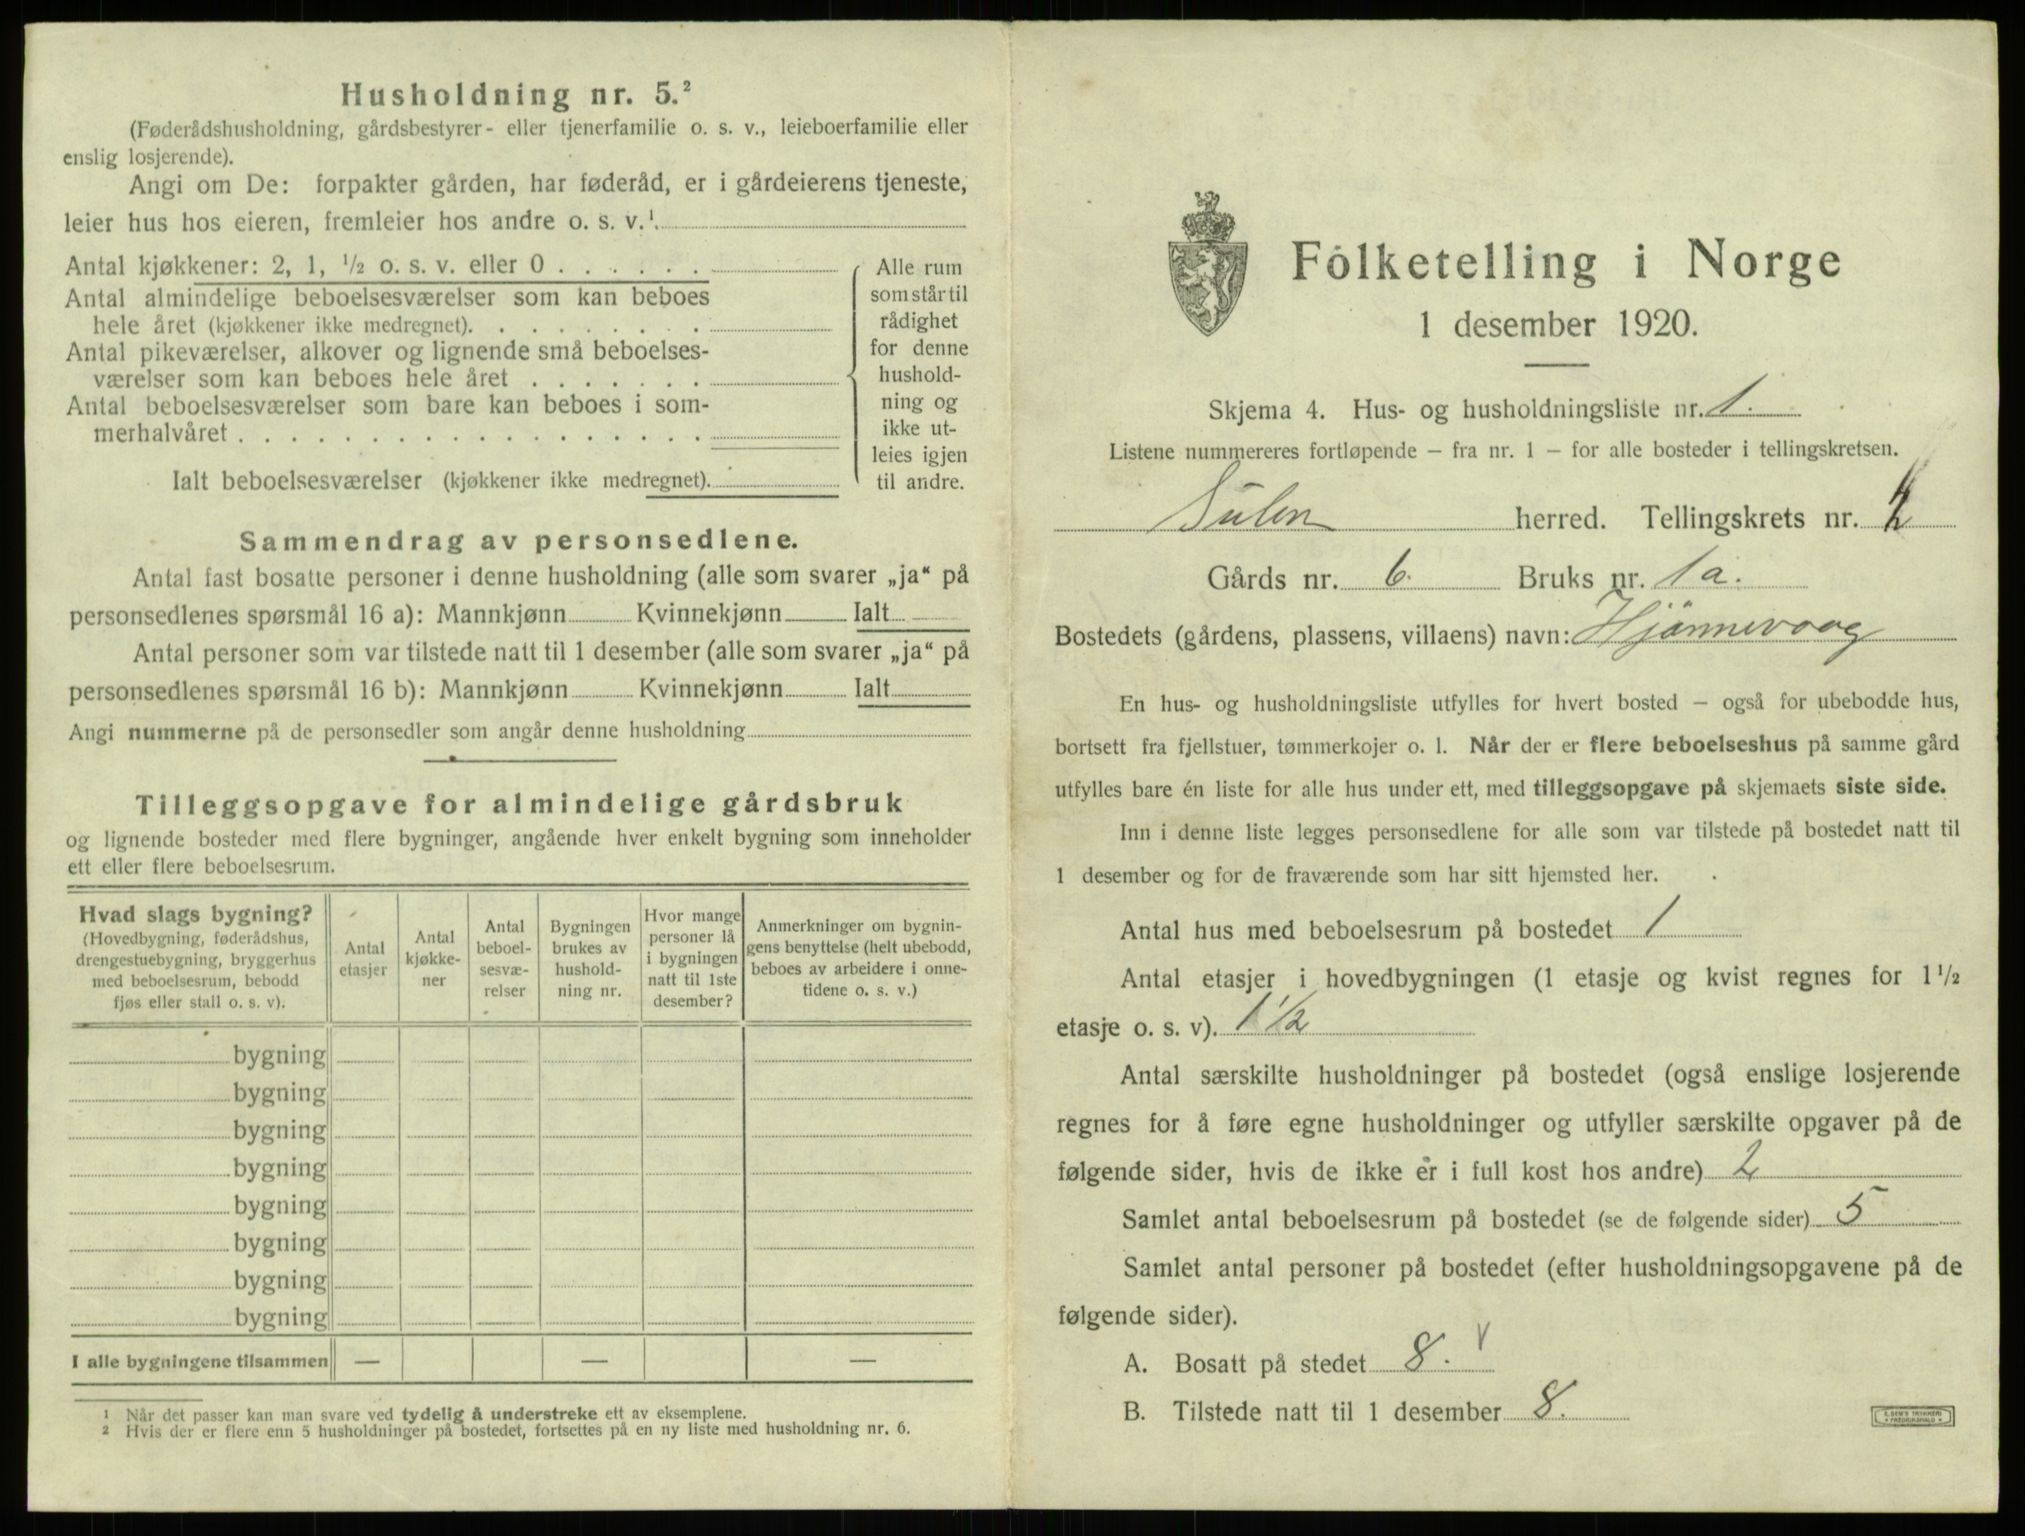 Husholdning nr. 5.²
(Føderådshusholdning, gårdsbestyrer- eller tjenerfamilie o. s. v., leieboerfamilie eller
enslig losjerende).
Angi om De: forpakter gården, har føderåd, er i gårdeierens tjeneste,
leier hus hos eieren, fremleier hos andre o. s. v.¹
Antal kjøkkener: 2, 1, ½ o. s. v. eller 0 . . . . . .
Antal almindelige beboelsesværelser som kan beboes
hele året (kjøkkener ikke medregnet). . . . . . . . .
Antal pikeværelser, alkover og lignende små beboelses-
værelser som kan beboes hele året . . . . . . .
Antal beboelsesværelser som bare kan beboes i som-
merhalvåret . . . . . . . . . . . . . . . . . .
Ialt beboelsesværelser (kjøkkener ikke medregnet).
Alle rum
som står til
rådighet
for denne
hushold-
ning og
ikke ut-
leies igjen
til andre.
Sammendrag av personsedlene.
Antal fast bosatte personer i denne husholdning (alle som svarer „ja“ på
personsedlenes spørsmål 16 a): Mannkjønn Kvinnekjønn Ialt
Antal personer som var tilstede natt til 1 desember (alle som svarer „ja“ på
personsedlenes spørsmål 16 b): Mannkjønn Kvinnekjønn Ialt
Angi nummerne på de personsedler som angår denne husholdning
Tilleggsopgave for almindelige gårdsbruk
og lignende bosteder med flere bygninger, angående hver enkelt bygning som inneholder
ett eller flere beboelsesrum.
Hvad slags bygning?
(Hovedbygning, føderådshus,
drengestuebygning, bryggerhus
med beboelsesrum, bebodd
fjøs eller stall o. s. v).
Antal
etasjer
Antal
kjøkke-
ner
Antal
beboel-
sesvæ-
relser
Bygningen
brukes av
hushold-
ning nr.
Hvor mange
personer lå
i bygningen
natt til 1ste
desember?
Anmerkninger om bygnin-
gens benyttelse (helt ubebodd,
beboes av arbeidere i onne-
tidene o. s. v.)
bygning
bygning
bygning
bygning
bygning
bygning
bygning
bygning
I alle bygningene tilsammen — — —
¹ Når det passer kan man svare ved tydelig å understreke ett av eksemplene.
² Hvis der er flere enn 5 husholdninger på bostedet, fortsettes på en ny liste med husholdning nr. 6.
Folketelling i Norge
1 desember 1920.
Skjema 4. Hus- og husholdningsliste nr. 1.
Listene nummereres fortløpende – fra nr. 1 – for alle bosteder i tellingskretsen.
Sulen herred. Tellingskrets nr. 2
Gårds nr. 6. Bruks nr. 1a.
Bostedets (gårdens, plassens, villaens) navn: Hjønnevaag
En hus- og husholdningsliste utfylles for hvert bosted – også for ubebodde hus,
bortsett fra fjellstuer, tømmerkojer o. l. Når der er flere beboelseshus på samme gård
utfylles bare én liste for alle hus under ett, med tilleggsopgave på skjemaets siste side.
Inn i denne liste legges personsedlene for alle som var tilstede på bostedet natt til
1 desember og for de fraværende som har sitt hjemsted her.
Antal hus med beboelsesrum på bostedet 1
Antal etasjer i hovedbygningen (1 etasje og kvist regnes for 1½
etasje o. s. v). 1½
Antal særskilte husholdninger på bostedet (også enslige losjerende
regnes for å føre egne husholdninger og utfyller særskilte opgaver på de
følgende sider, hvis de ikke er i full kost hos andre) 2
Samlet antal beboelsesrum på bostedet (se de følgende sider) 5
Samlet antal personer på bostedet (efter husholdningsopgavene på de
følgende sider).
A. Bosatt på stedet 8. v
B. Tilstede natt til 1 desember 8.
E. SEM'S TRYKKERI
FREDRIKSHALD